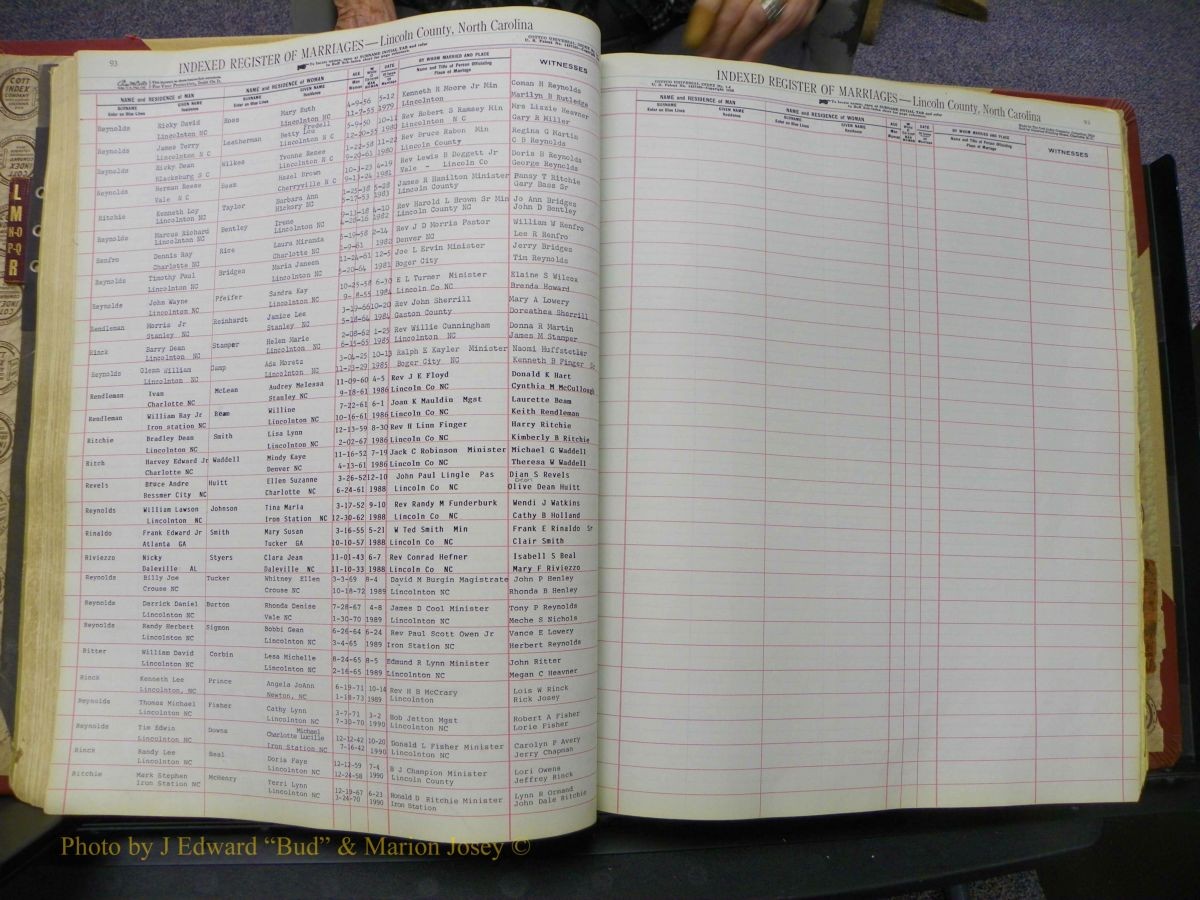 93
INDEXED REGISTER OF MARRIAGES—Lincoln County, North Carolina
NAME AND RESIDENCE OF MAN
NAME AND RESIDENCE OF WOMAN
BY WHOM MARRIED AND PLACE
WITNESSES
Reynolds Ricky David Ross Mary Ruth 4-9-56 5-12 Kenneth R Moore Jr Min Conan H Reynolds
Lincolnton NC Lincolnton NC 11-7-55 1979 Lincolnton Marilyn B Rutledge
Reynolds James Terry Leatherman Betty Lou 5-9-50 10-11 Rev Robert S Ramsey Min Mrs Lizzie Heavner
Lincolnton N C Lincolnton NC 12-20-55 1980 Lincolnton N C Gary R Miller
Reynolds Ricky Dean Wilkes Yvonne Renee 1-22-58 11-22 Rev Bruce Rabon Min Regina G Martin
Blacksburg S C Lincolnton N C 9-20-61 1980 Lincoln County C D Reynolds
Reynolds Herman Reese Hazel Brown 10-1-23 6-19 Rev Lewis B Doggett Jr Doris B Reynolds
Vale N C Cherryville N C 9-13-24 1981 Vale - Lincoln Co George Reynolds
Ritchie Kenneth Loy Taylor Barbara Ann 1-25-38 5-28 James R Hamilton Minister Pansy T Ritchie
Lincolnton NC Hickory NC 5-17-53 1983 Lincoln County Gary Bass Sr
Reynolds Marcus Richard Bentley Irene 9-13-58 4-10 Rev Harold L Brown Sr Min Jo Ann Bridges
Lincolnton NC Lincolnton NC 1982 Lincoln County NC John D Bentley
Renfro Dennis Ray Rice Laura Miranda 5-19-58 2-14 Rev J D Morris Pastor William W Renfro
Charlotte NC Charlotte NC 1982 Denver NC Lee R Renfro
Reynolds Timothy Paul Bridges Maria Janeen 11-24-61 12-5 Joe L Ervin Minister Jerry Bridges
Lincolnton NC Lincolnton NC 5-20-64 1981 Boger City Tim Reynolds
Reynolds John Wayne Pfeifer Sandra Kay 10-25-58 6-30 E L Turner Minister Elaine S Wilcox
Lincolnton NC Lincolnton NC 9-8-55 1984 Lincoln Co NC Brenda Howard
Rendleman Morris Jr Reinhardt Janice Lee 3-19-66 10-20 Rev John Sherrill Mary A Lowery
Stanley NC Stanley NC 5-18-64 1984 Gaston County Doreathea Sherrill
Rinck Barry Dean Stamper Helen Marie 2-08-62 1-25 Rev Willie Cunningham Donna R Martin
Lincolnton NC Lincolnton NC 6-15-65 1985 Lincolnton NC James M Stamper
Reynolds Glenn William Camp Ada Moretz 3-04-25 10-13 Ralph E Kayler Minister Naomi Huffstetler
Lincolnton NC Lincolnton NC 11-23-29 1985 Boger City NC Kenneth B Finger Sr
Rendleman Ivan McLean Audrey Melessa 11-09-60 4-5 Rev J K Floyd Donald K Hart
Charlotte NC Stanley NC 9-18-61 1986 Lincoln Co NC Cynthia M McCullough
Rendleman William Ray Jr Beam Willine 7-22-61 6-1 Joan K Mauldin Mgst Laurette Beam
Iron station NC Lincolnton NC 10-16-61 1986 Lincoln Co NC Keith Rendleman
Ritchie Bradley Dean Smith Lisa Lynn 12-13-59 8-30 Rev H Linn Finger Harry Ritchie
Lincolnton NC Lincolnton NC 2-02-67 1986 Lincoln Co NC Kimberly B Ritchie
Ritch Harvey Edward Jr Waddell Mindy Kaye 11-16-52 7-19 Jack C Robinson Minister Michael G Waddell
Charlotte NC Denver NC 4-13-61 1986 Lincoln Co NC Theresa W Waddell
Revels Bruce Andre Huitt Ellen Suzanne 3-26-52 12-10 John Paul Lingle Pas Dian S Revels
Bessmer City NC Charlotte NC 6-24-61 1988 Lincoln Co NC Olive Dean Huitt
Reynolds William Lawson Johnson Tina Maria 3-17-52 9-10 Rev Randy M Funderburk Wendi J Watkins
Lincolnton NC Iron Station NC 12-30-62 1988 Lincoln Co NC Cathy B Holland
Rinaldo Frank Edward Jr Smith Mary Susan 3-16-55 5-21 W Ted Smith Min Frank E Rinaldo Sr
Atlanta GA Tucker GA 10-10-57 1988 Lincoln Co NC Clair Smith
Riviezzo Nicky Styers Clara Jean 11-01-43 6-7 Rev Conrad Hefner Isabell S Beal
Daleville AL Daleville NC 11-10-33 1988 Lincoln Co NC Mary F Riviezzo
Reynolds Billy Joe Tucker Whitney Ellen 3-3-69 8-4 David M Burgin Magistrate John P Henley
Crouse NC Crouse NC 10-18-72 1989 Lincoln NC Rhonda B Henley
Reynolds Derrick Daniel Burton Rhonda Denise 7-28-67 4-8 James D Cool Minister Tony P Reynolds
Lincolnton NC Vale NC 1-30-70 1989 Lincolnton NC Meche S Nichols
Reynolds Randy Herbert Sigmon Bobbi Gean 6-26-64 6-24 Rev Paul Scott Owen Jr Vance E Lowery
Lincolnton NC Lincolnton NC 3-4-65 1989 Iron Station NC Herbert Reynolds
Ritter William David Corbin Lesa Michelle 8-24-65 8-5 Edmund R Lynn Minister John Ritter
Lincolnton NC Lincolnton NC 2-16-65 1989 Lincolnton NC Megan C Heavner
Rinck Kenneth Lee Prince Angela JoAnn 6-19-71 10-14 Rev H B McCrasy Lois W Rinck
Lincolnton, NC Newton, NC 1-18-73 1989 Lincolnton Rick Josey
Reynolds Thomas Michael Fisher Cathy Lynn 3-7-71 3-2 Bob Jetton Mgst Robert A Fisher
Lincolnton NC Lincolnton NC 7-30-70 1990 Lincolnton NC Lorie Fisher
Reynolds Tim Edwin Downs Michael Charlotte Lucille 12-12-42 10-20 Donald L Fisher Minister Carolyn P Avery
Lincolnton NC Iron Station NC 7-16-42 1990 Lincolnton NC Jerry Chapman
Rinck Randy Lee Beal Doris Faye 12-12-59 7-4 B J Champion Minister Lori Owens
Lincolnton NC Lincolnton NC 12-24-58 1990 Lincoln County Jeffrey Rinck
Ritchie Mark Stephen McHenry Terri Lynn 12-19-67 6-23 Ronald D Ritchie Minister Lynn R Ormand
Iron Station NC Lincolnton NC 3-24-70 1990 Iron Station John Dale Ritchie
INDEXED REGISTER OF MARRIAGES—Lincoln County, North Carolina
NAME AND RESIDENCE OF MAN
NAME AND RESIDENCE OF WOMAN
BY WHOM MARRIED AND PLACE
WITNESSES
L
M
N-O
P-Q
R
COTT INDEX COMPANY
Photo by J Edward “Bud” & Marion Josey ©